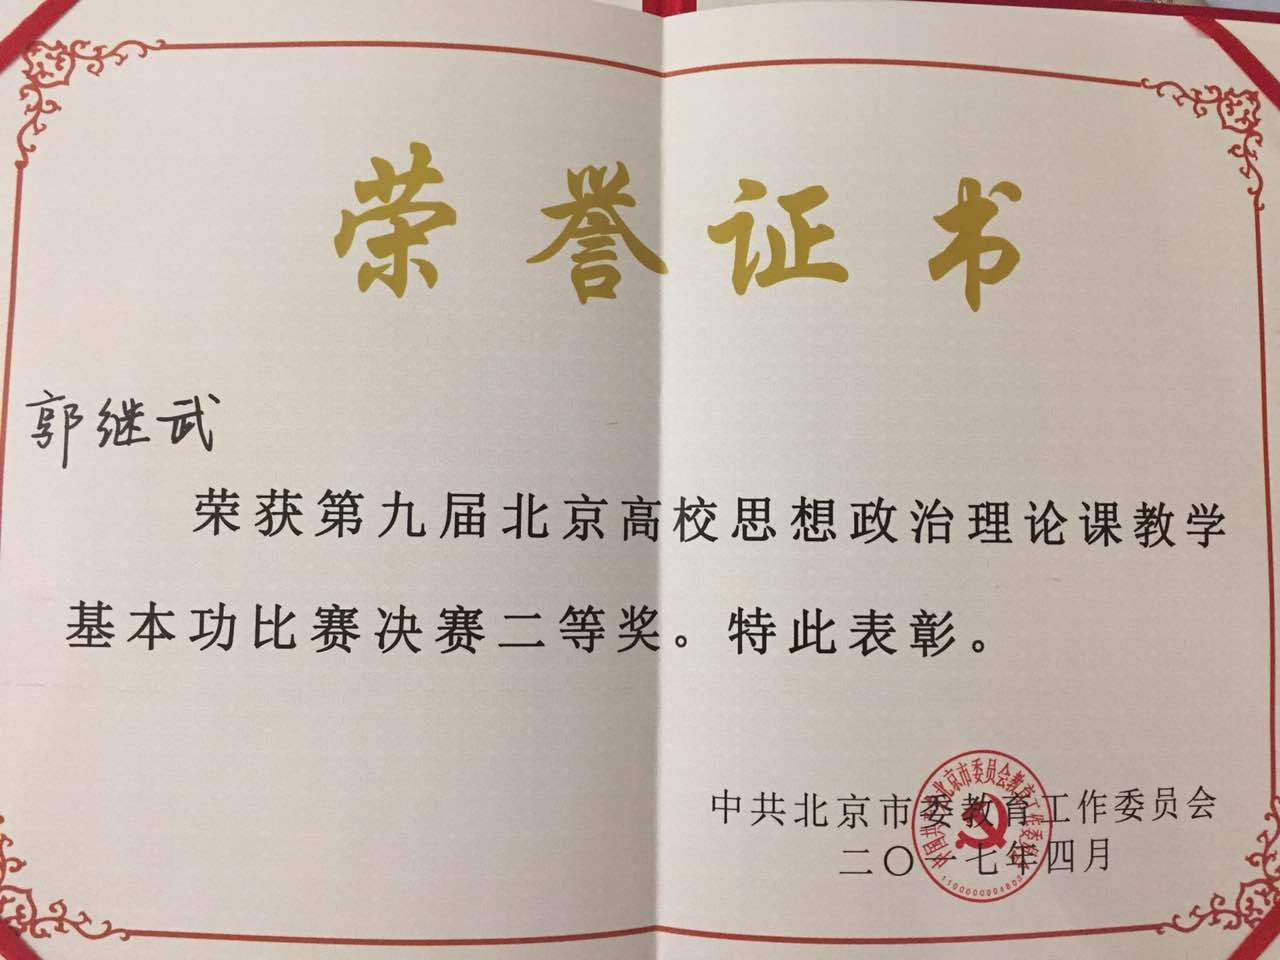 荣誉证书
郭继武
荣获第九届北京高校思想政治理论课教学
基本功比赛决赛二等奖。特此表彰。
中共北京市委教育工作委员会
二〇一七年四月
中国共产党北京市委员会教育工作委员会